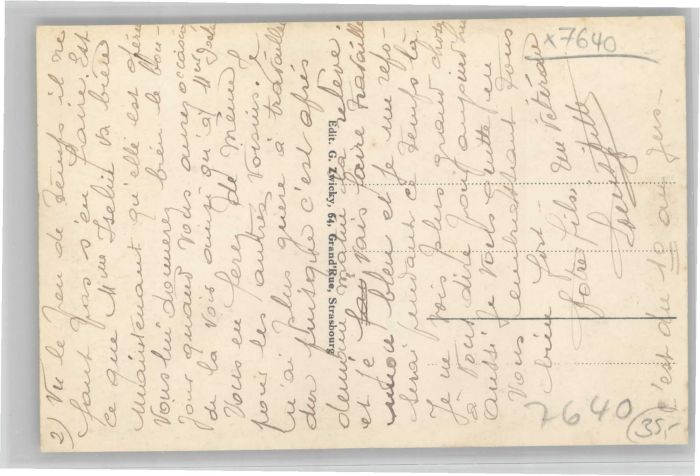 2) Vu le peu de temps il ne
faut pas s'en faire. Est
ce que Mme Iselin va bien
maintenant qu'elle est opérée
Vous lui donnerez bien le bon-
jour quand vous aurez occasion
de la voir ainsi qu'à Mme
Vous en ferez de même
pour les autres voisins. Je
n'ai plus guère à travailler
dur puisque c'est après
demain matin la relève.
et je vais faire travailler
mon bleu et je me repo-
serai pendant ce temps là.
Je ne vois plus grand chose
à vous dire pour aujourd'hui
aussi je vous quitte en
vous embrassant tous
bien fort.
Votre fils. Un vétéran
c'est du 10 au jus
Edit. G. Zwicky, 64, Grand'Rue, Strasbourg
x7640
7640
35,-